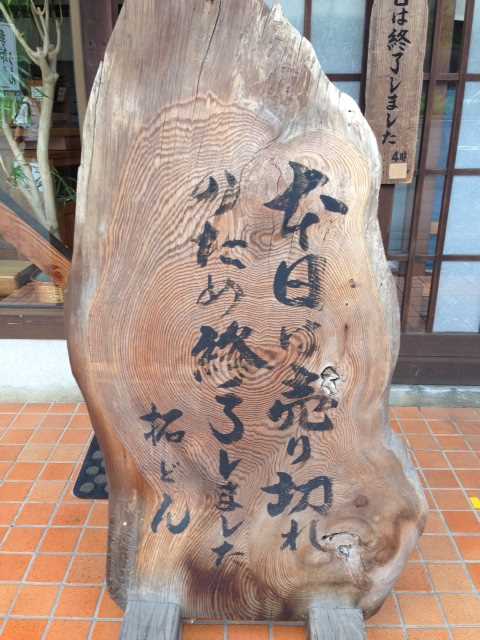 本日は売り切れ
のため終了しました
拓どん
日は終了しました